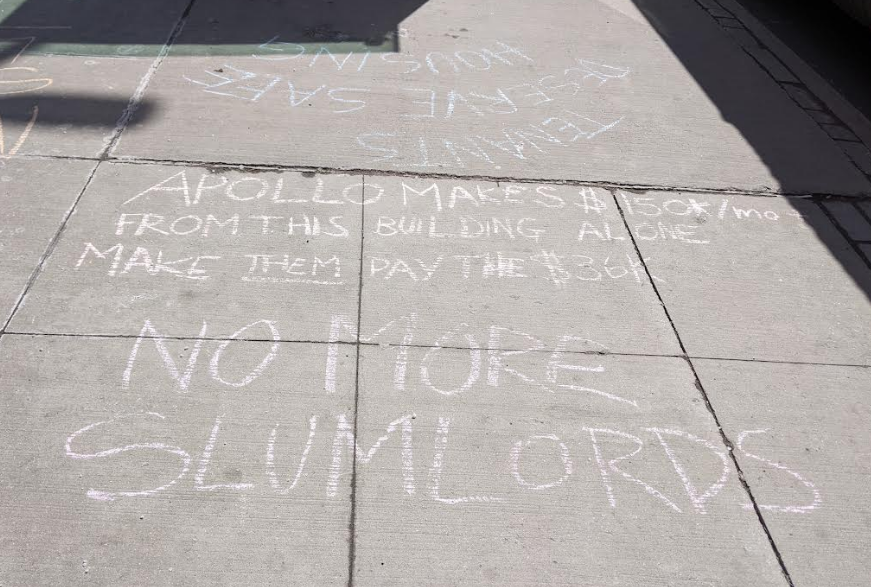 TENANTS
DESERVE SAFE
HOUSING
APOLLO MAKES $150K/mo
FROM THIS BUILDING ALONE
MAKE THEM PAY THE $36K
NO MORE
SLUMLORDS